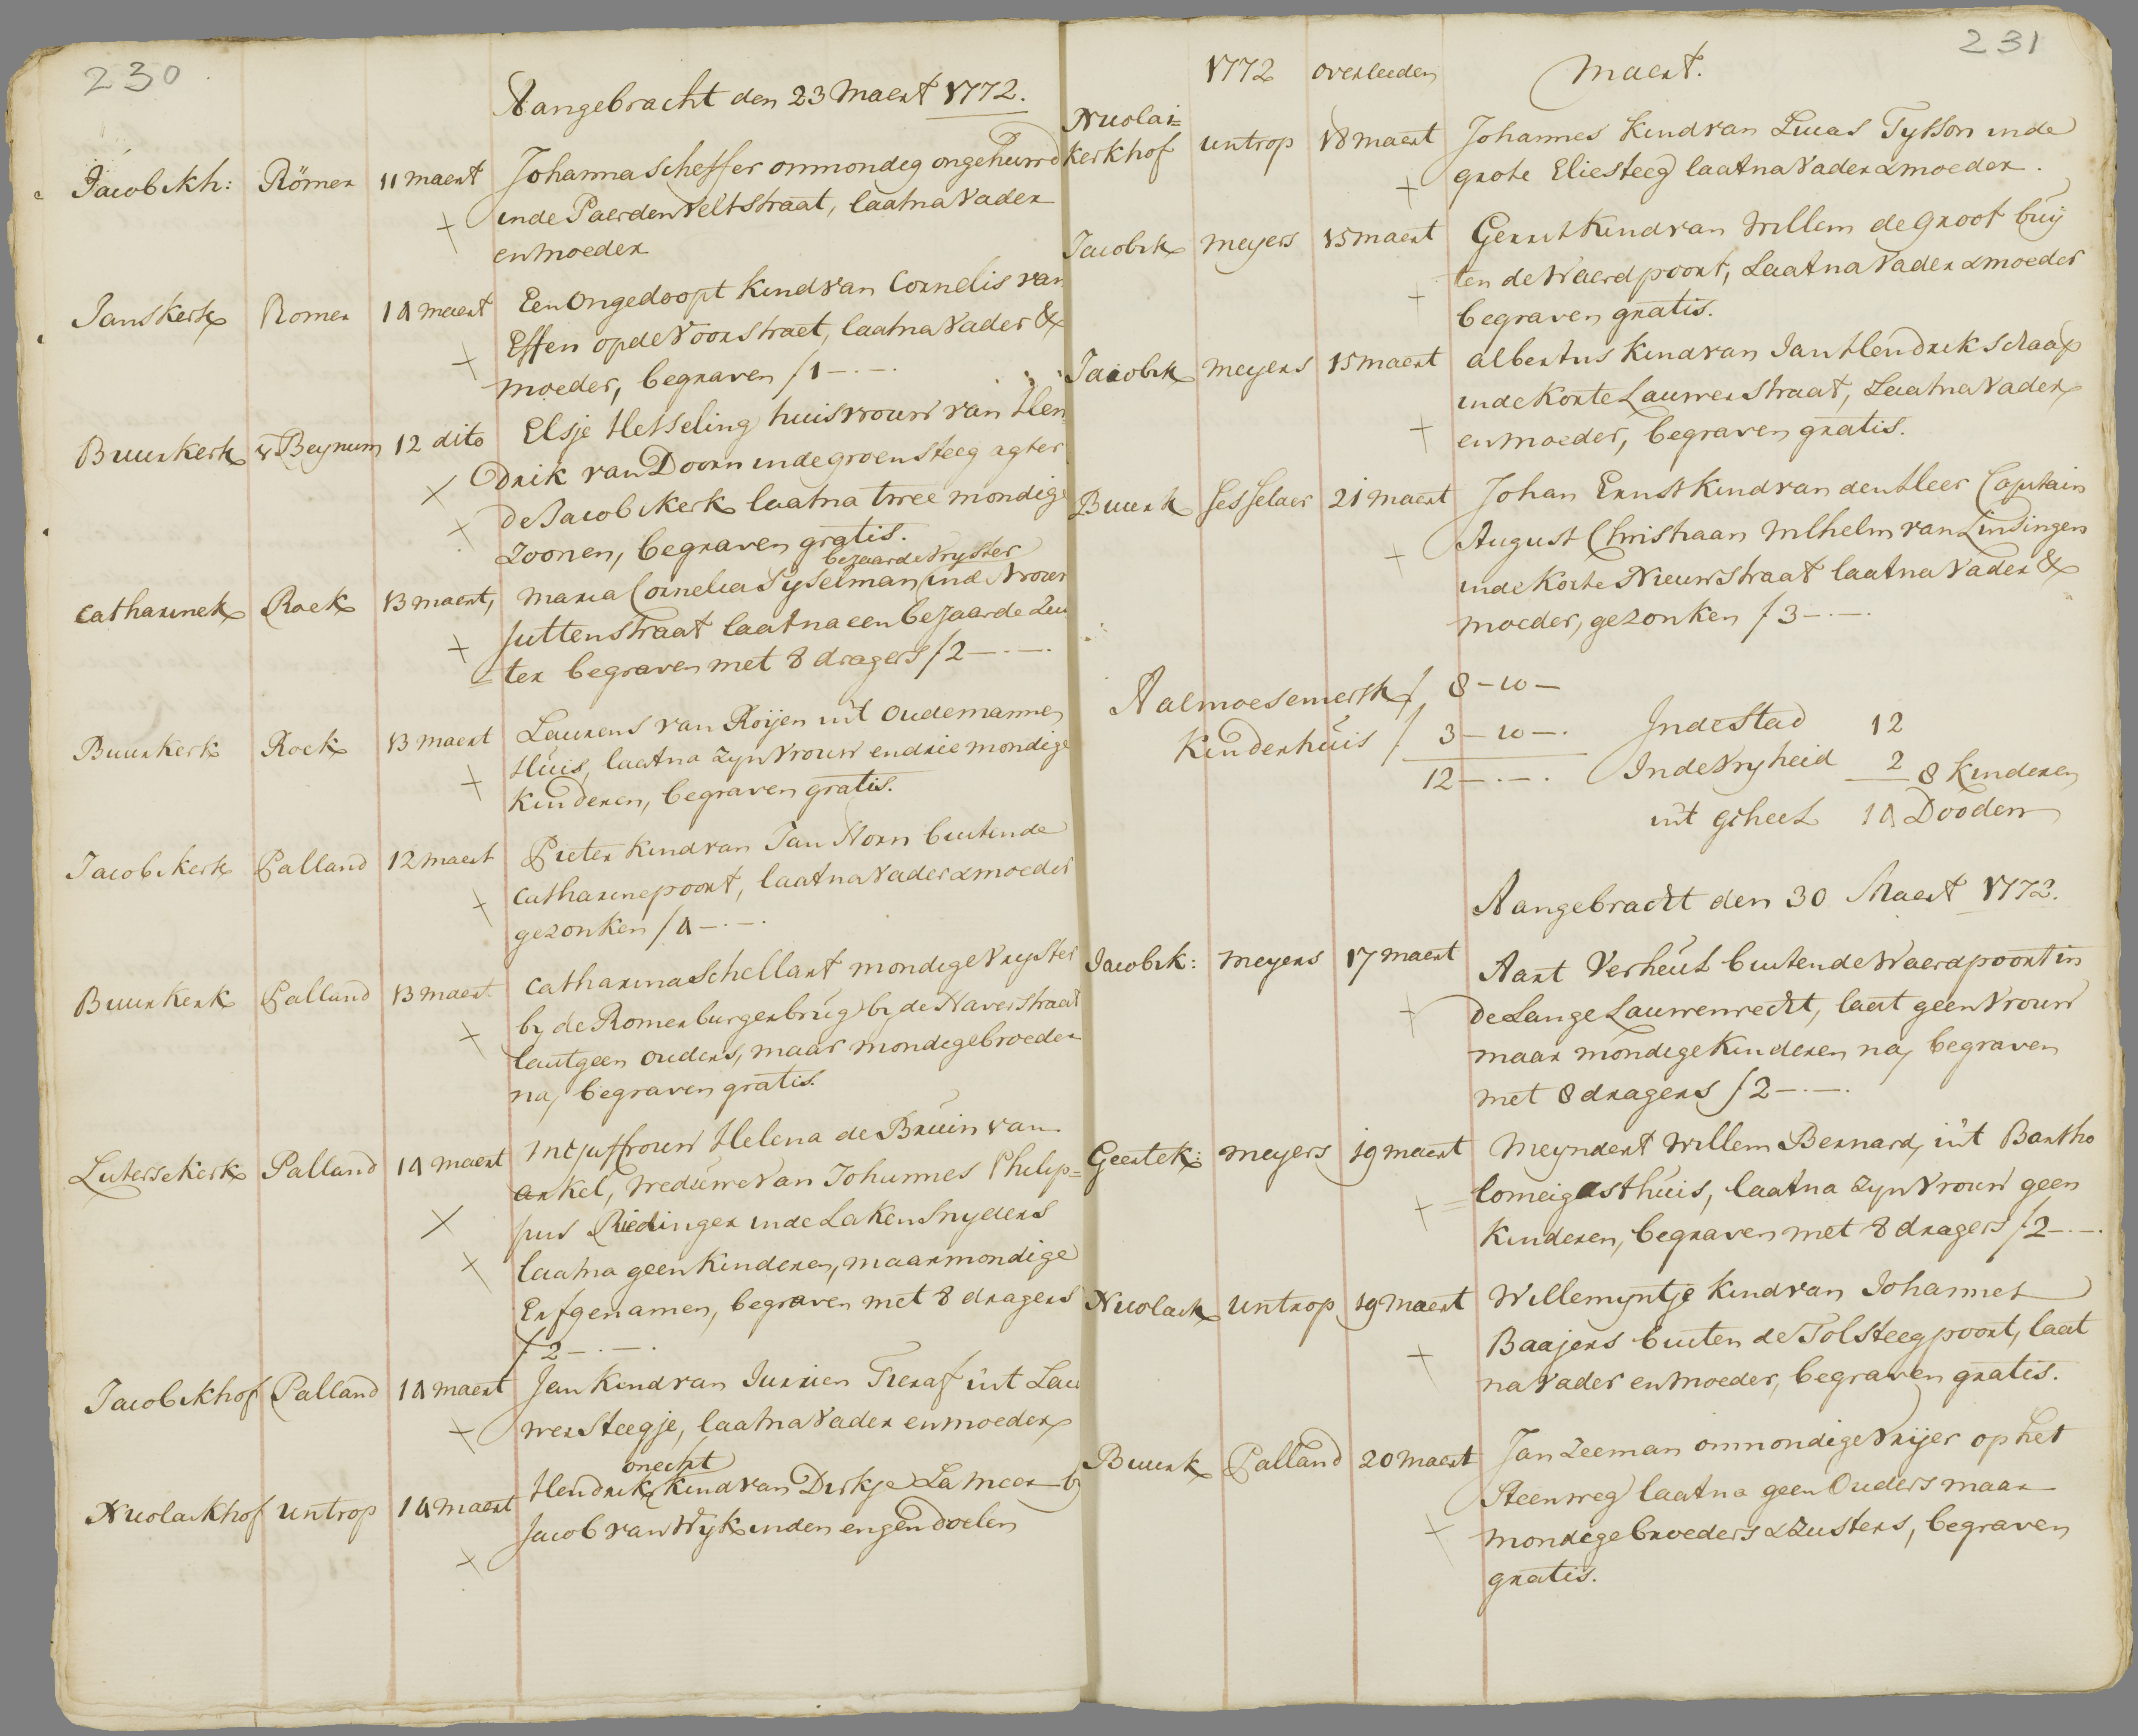 230
Aangebracht den 23 Maert 1772.
Jacobikh: Römer 11 maert Johanna Scheffer onmondig ongehuwd
inde Paerdenveltstraat, laatna Vader
en moeder
Janskerk Romer 14 maert Een Ongedoopt kind van Cornelis van
Essen opde Voorstraet, laatna Vader &
moeder, begraven f1-.-.
Buurkerk v. Beynum 12 dito Elsje Hesseling huisvrouw van Hen
drik van Doorn inde groensteeg agter
de Jacobikerk laatna twee mondige
Zoonen, begraven gratis.
bejaarde Vryster
Catharinek Roek 13 maert, Maria Cornelia Syselman inde Vrouw
Juttenstraat laatna een bejaarde Zus
ter begraven met 8 dragers f2-.-.
Buurkerk Roek 13 maert Laurens van Roijen uit Oudemannen
Huis, laatna zyn Vrouw en drie mondige
kinderen, begraven gratis.
Jacobikerk Palland 12 maert Pieter kind van Jan Horn buitende
Catharinepoort, laatna Vader & moeder
gezonken f4-.-.
Buurkerk Palland 13 maert Catharina Schellart mondige Vryster
by de Romerburgerbrug by de Haverstraat
laat geen ouders, maar mondige broeder
na, begraven gratis.
Luthersekerk Palland 14 maert Mejuffrouw Helena de Bruin van
Arkel, Weduwe van Johannes Philip=
pus Riedinger inde Lakensnyders
laatna geen kinderen, maar mondige
Erfgenamen, begraven met 8 dragers
f2-.-.
Jacobikhof Palland 14 maert Jan kind van Jurrien Tieraf uit Lau
wersteegje, laatna Vader en moeder
onecht
Nicolaikhof Untrop 14 maert Hendrik kind van Dirkje La Meer by
Jacob van Wyk inden engendoelen
231
1772 overleeden Maert.
Nicolai=
kerkhof Untrop 18 maert Johannes kind van Lucas Tysson inde
grote Eliesteeg laatna Vader & moeder.
Jacobik Meyers 15 maert Gerrit kind van Willem de Groot buy
ten de Waerdpoort, Laatna Vader & moeder
begraven gratis.
Jacobik Meyers 15 maert Albertus kind van Jan Hendrik Schaap
inde Korte Lauwerstraat, Laatna Vader
en moeder, begraven gratis.
Buurk Gesselaer 21 maert Johan Ernst kind van den Heer Capitain
August Christiaan Wilhelm van Linsingen
inde Korte Nieuwstraat laatna Vader &
moeder, gezonken f3-.-.
Aalmoesenierskr f 8-10-
Kinderhuis f 3-10-. Inde Stad 12
12-.-. Inde Vryheid 2 8 kinderen
uit geheel 14 Dooden
Aangebracht den 30 Maert 1772.
Jacobik: Meyers 17 maert Aart Verheul buitende Waerdpoort in
de Lange Lauwerrecht, laat geen Vrouw
maar mondige kinderen na, begraven
met 8 dragers f2-.-.
Geertek: Meyers 19 maert Meyndert Willem Bernard, uit Bartho
lomeigasthuis, laatna zyn Vrouw geen
kinderen, begraven met 8 dragers f2-.-.
Nicolaik Untrop 19 maert Willemyntje kind van Johannes
Baajens buiten de Tolsteegpoort, laat
na Vader en moeder, begraven gratis.
Buurk Palland 20 maert Jan Zeeman onmondige Vrijer op het
Steenweg laatna geen Ouders maar
mondige broeders & Zusters, begraven
gratis.